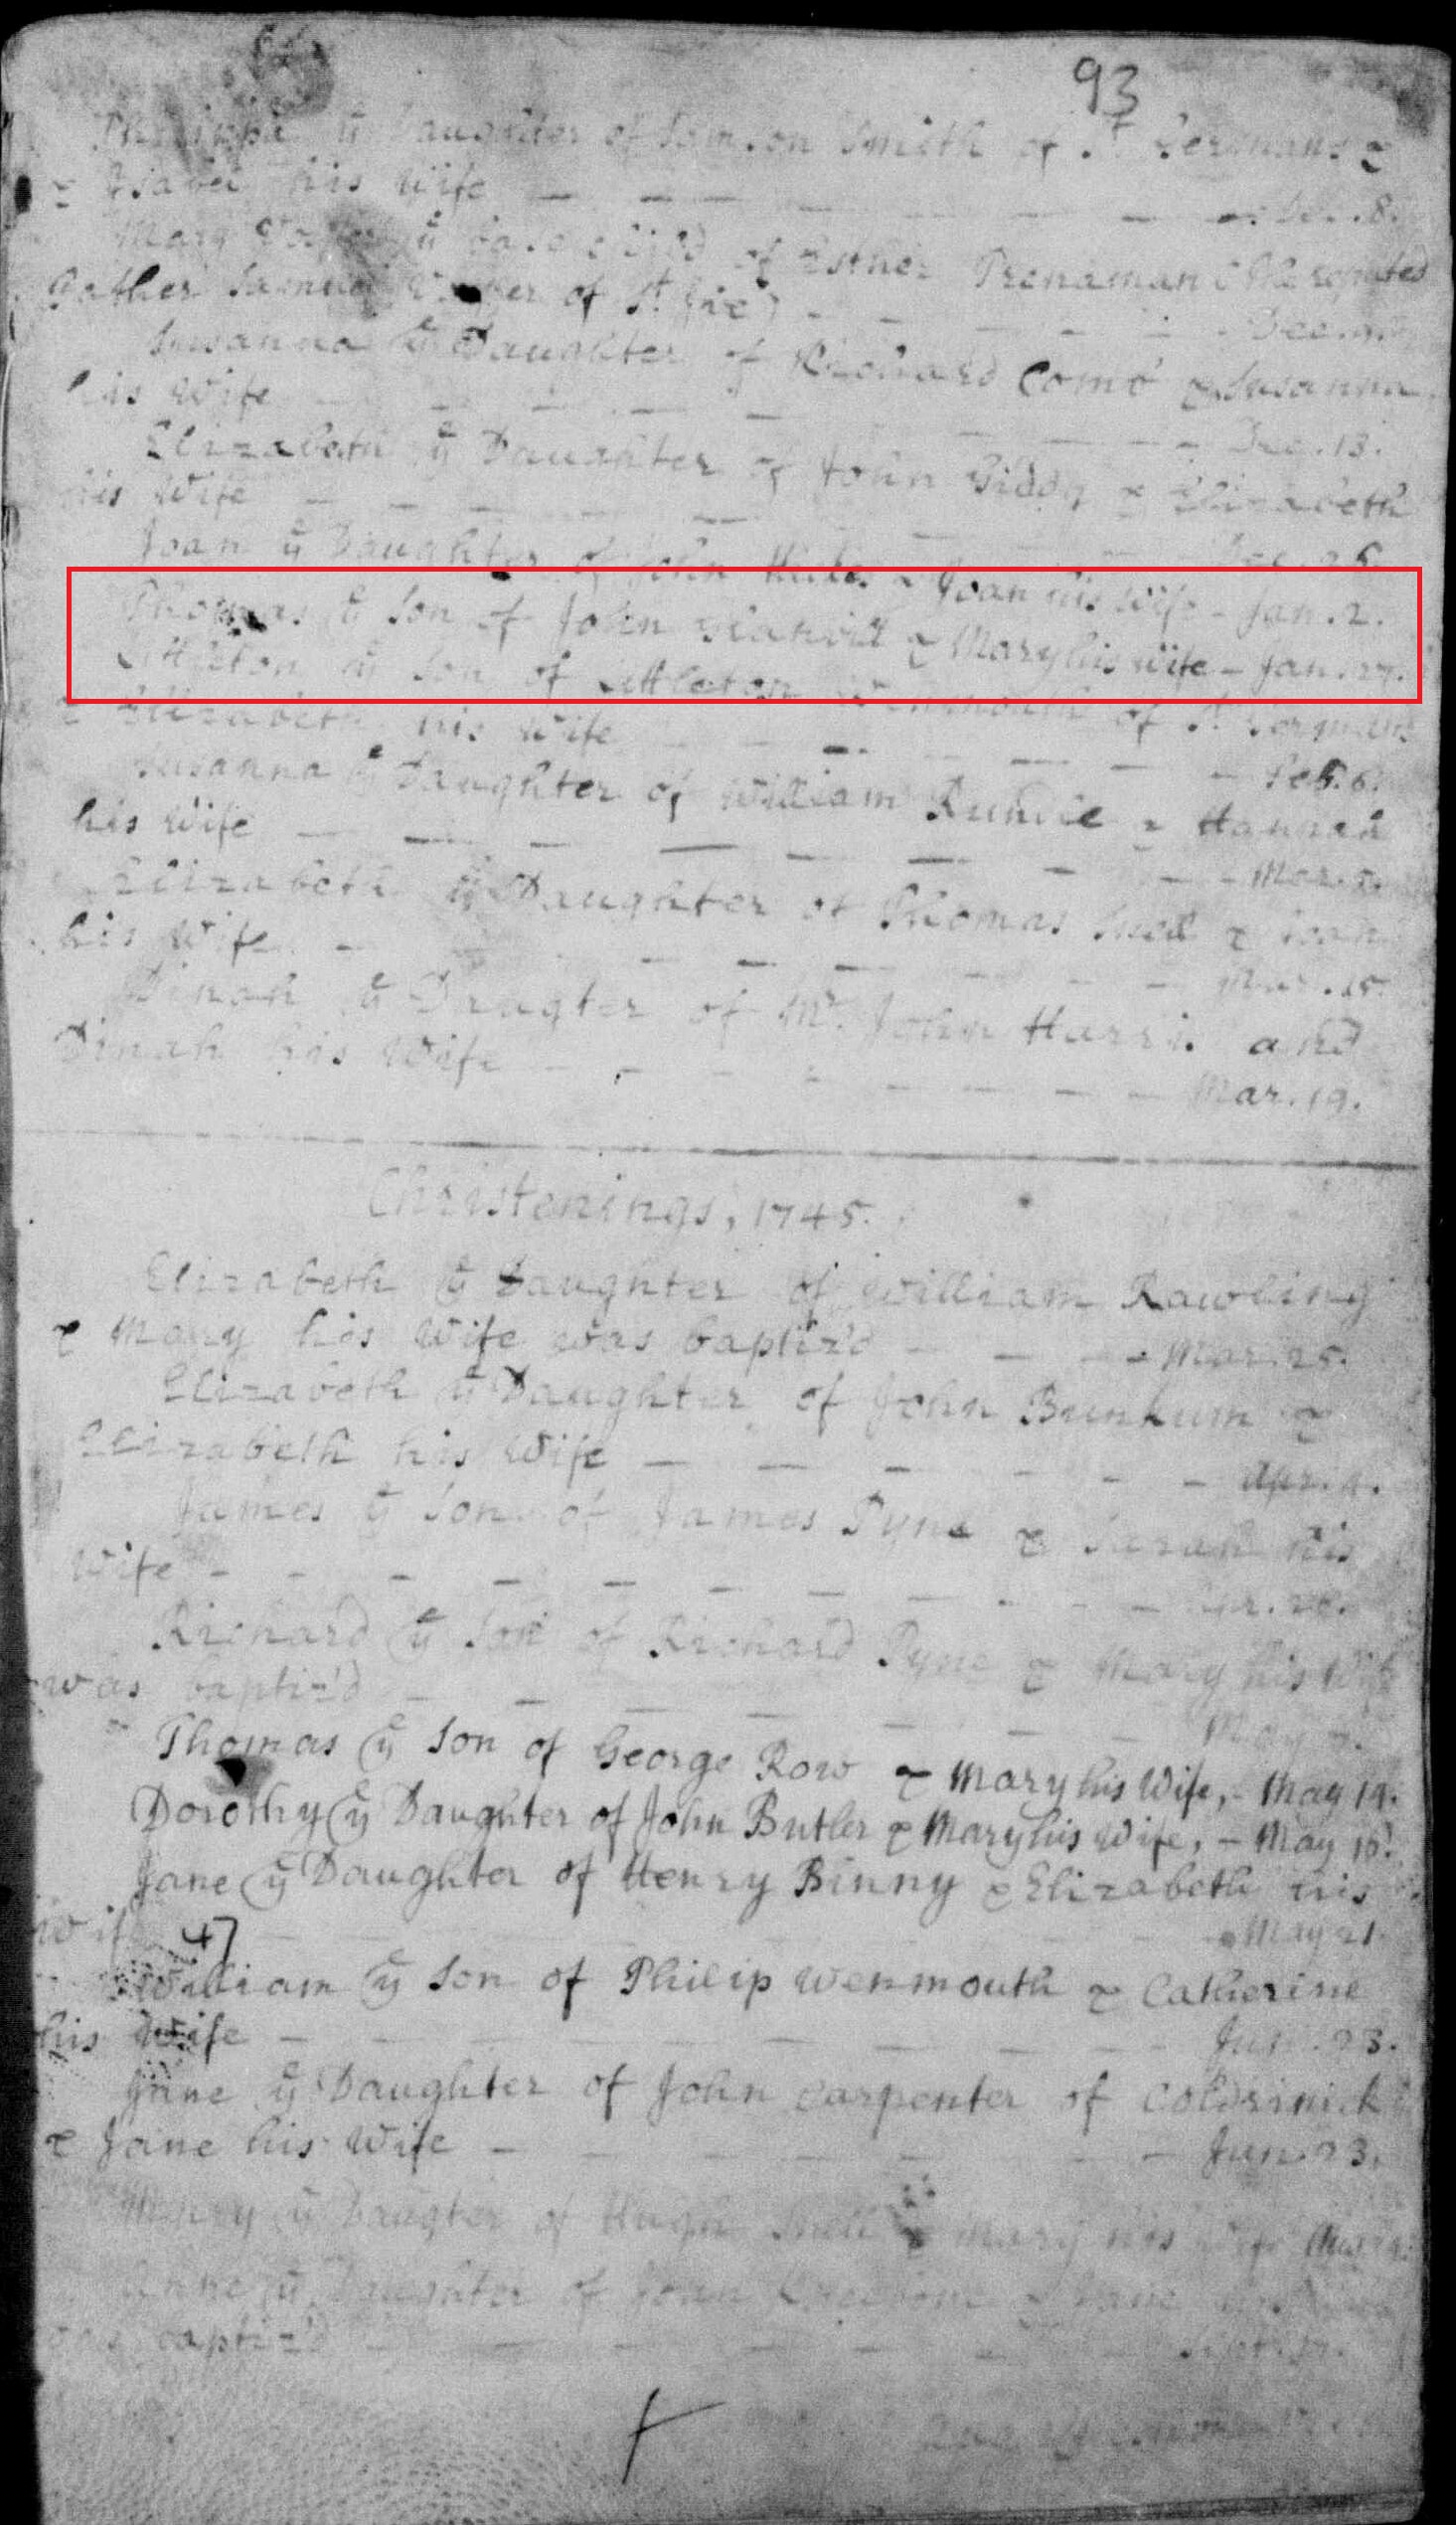 93
ye Daughter of Samson Smith of St Germans &
& Isabel his Wife 8.
Mary ye base child of Esther Prenaman (the reputed
Father Samuel of St Ive) Dec. 9.
Susanna ye Daughter of Richard Comb & Susanna
his Wife Dec. 13.
Elizabeth ye Daughter of John Giddy & Elizabeth
his Wife
Joan ye Daughter of John & Joan his Wife - Jan. 2.
Thomas ye Son of John & Mary his wife - Jan. 27.
Littleton ye Son of Littleton Wenmouth of St Germans
& Elizabeth his Wife Feb. 6.
Susanna ye Daughter of William Rundle & Hannah
his Wife - Mar.
Elizabeth ye Daughter of Thomas Snell & Joan
his Wife - Mar. 15.
Dinah ye Daugter of Mr. John Harris and
Dinah his Wife - Mar. 19.
Christenings, 1745.
Elizabeth ye Daughter of William Rawling
& Mary his Wife was baptiz'd - Mar. 25.
Elizabeth ye Daughter of John Bunkum &
Elizabeth his Wife - Apr.
James ye Son of James Pyne & Sarah his
Wife -
Richard ye Son of Richard Pyne & Mary his Wife
was baptiz'd - May
Thomas ye Son of George Row & Mary his Wife, - May 14.
Dorothy ye Daughter of John Butler & Mary his Wife, - May
Jane ye Daughter of Henry Binny & Elizabeth his
Wife May 21
47
William ye Son of Philip Wenmouth & Catherine
his Wife - Jun. 23.
Jane ye Daughter of John Carpenter of Coldrinick
& Jane his Wife - Jun. 23.
ye Daugter of Hugh Snell & Mary his Wife
Anne ye Daughter of John & Jane
was baptiz'd